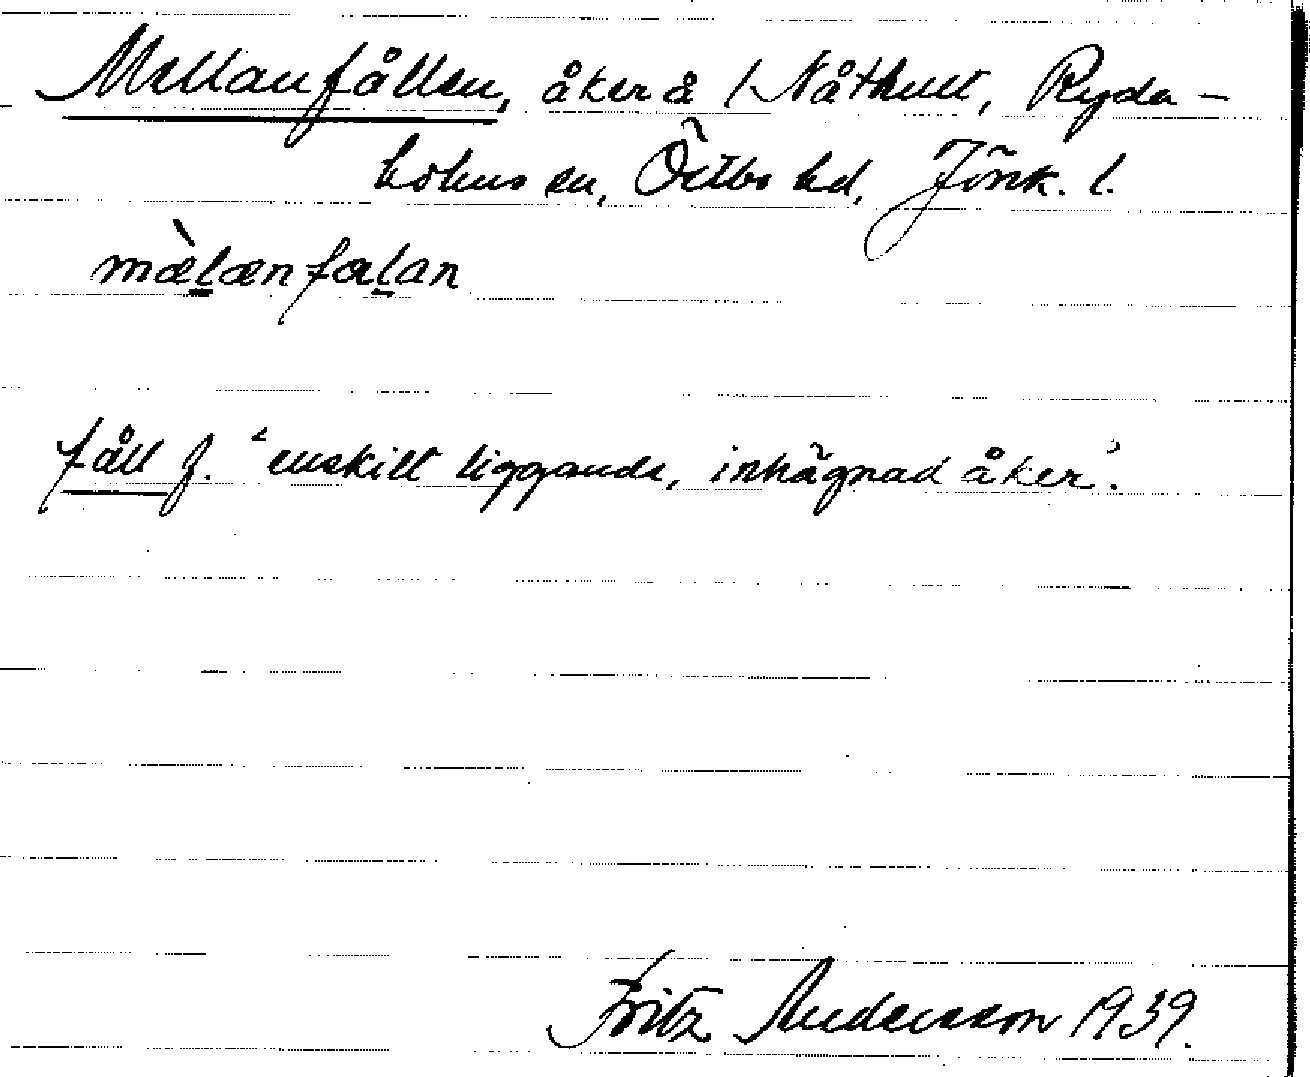 Mellanfållen, åker å /- Nåthult, Ryda-
holms sn, Östbo hd, Jönk. l.
mæ̀lænfalan
fåll f. 'enskilt liggande, inhägnad åker'.
Fritz Andersson 1939.